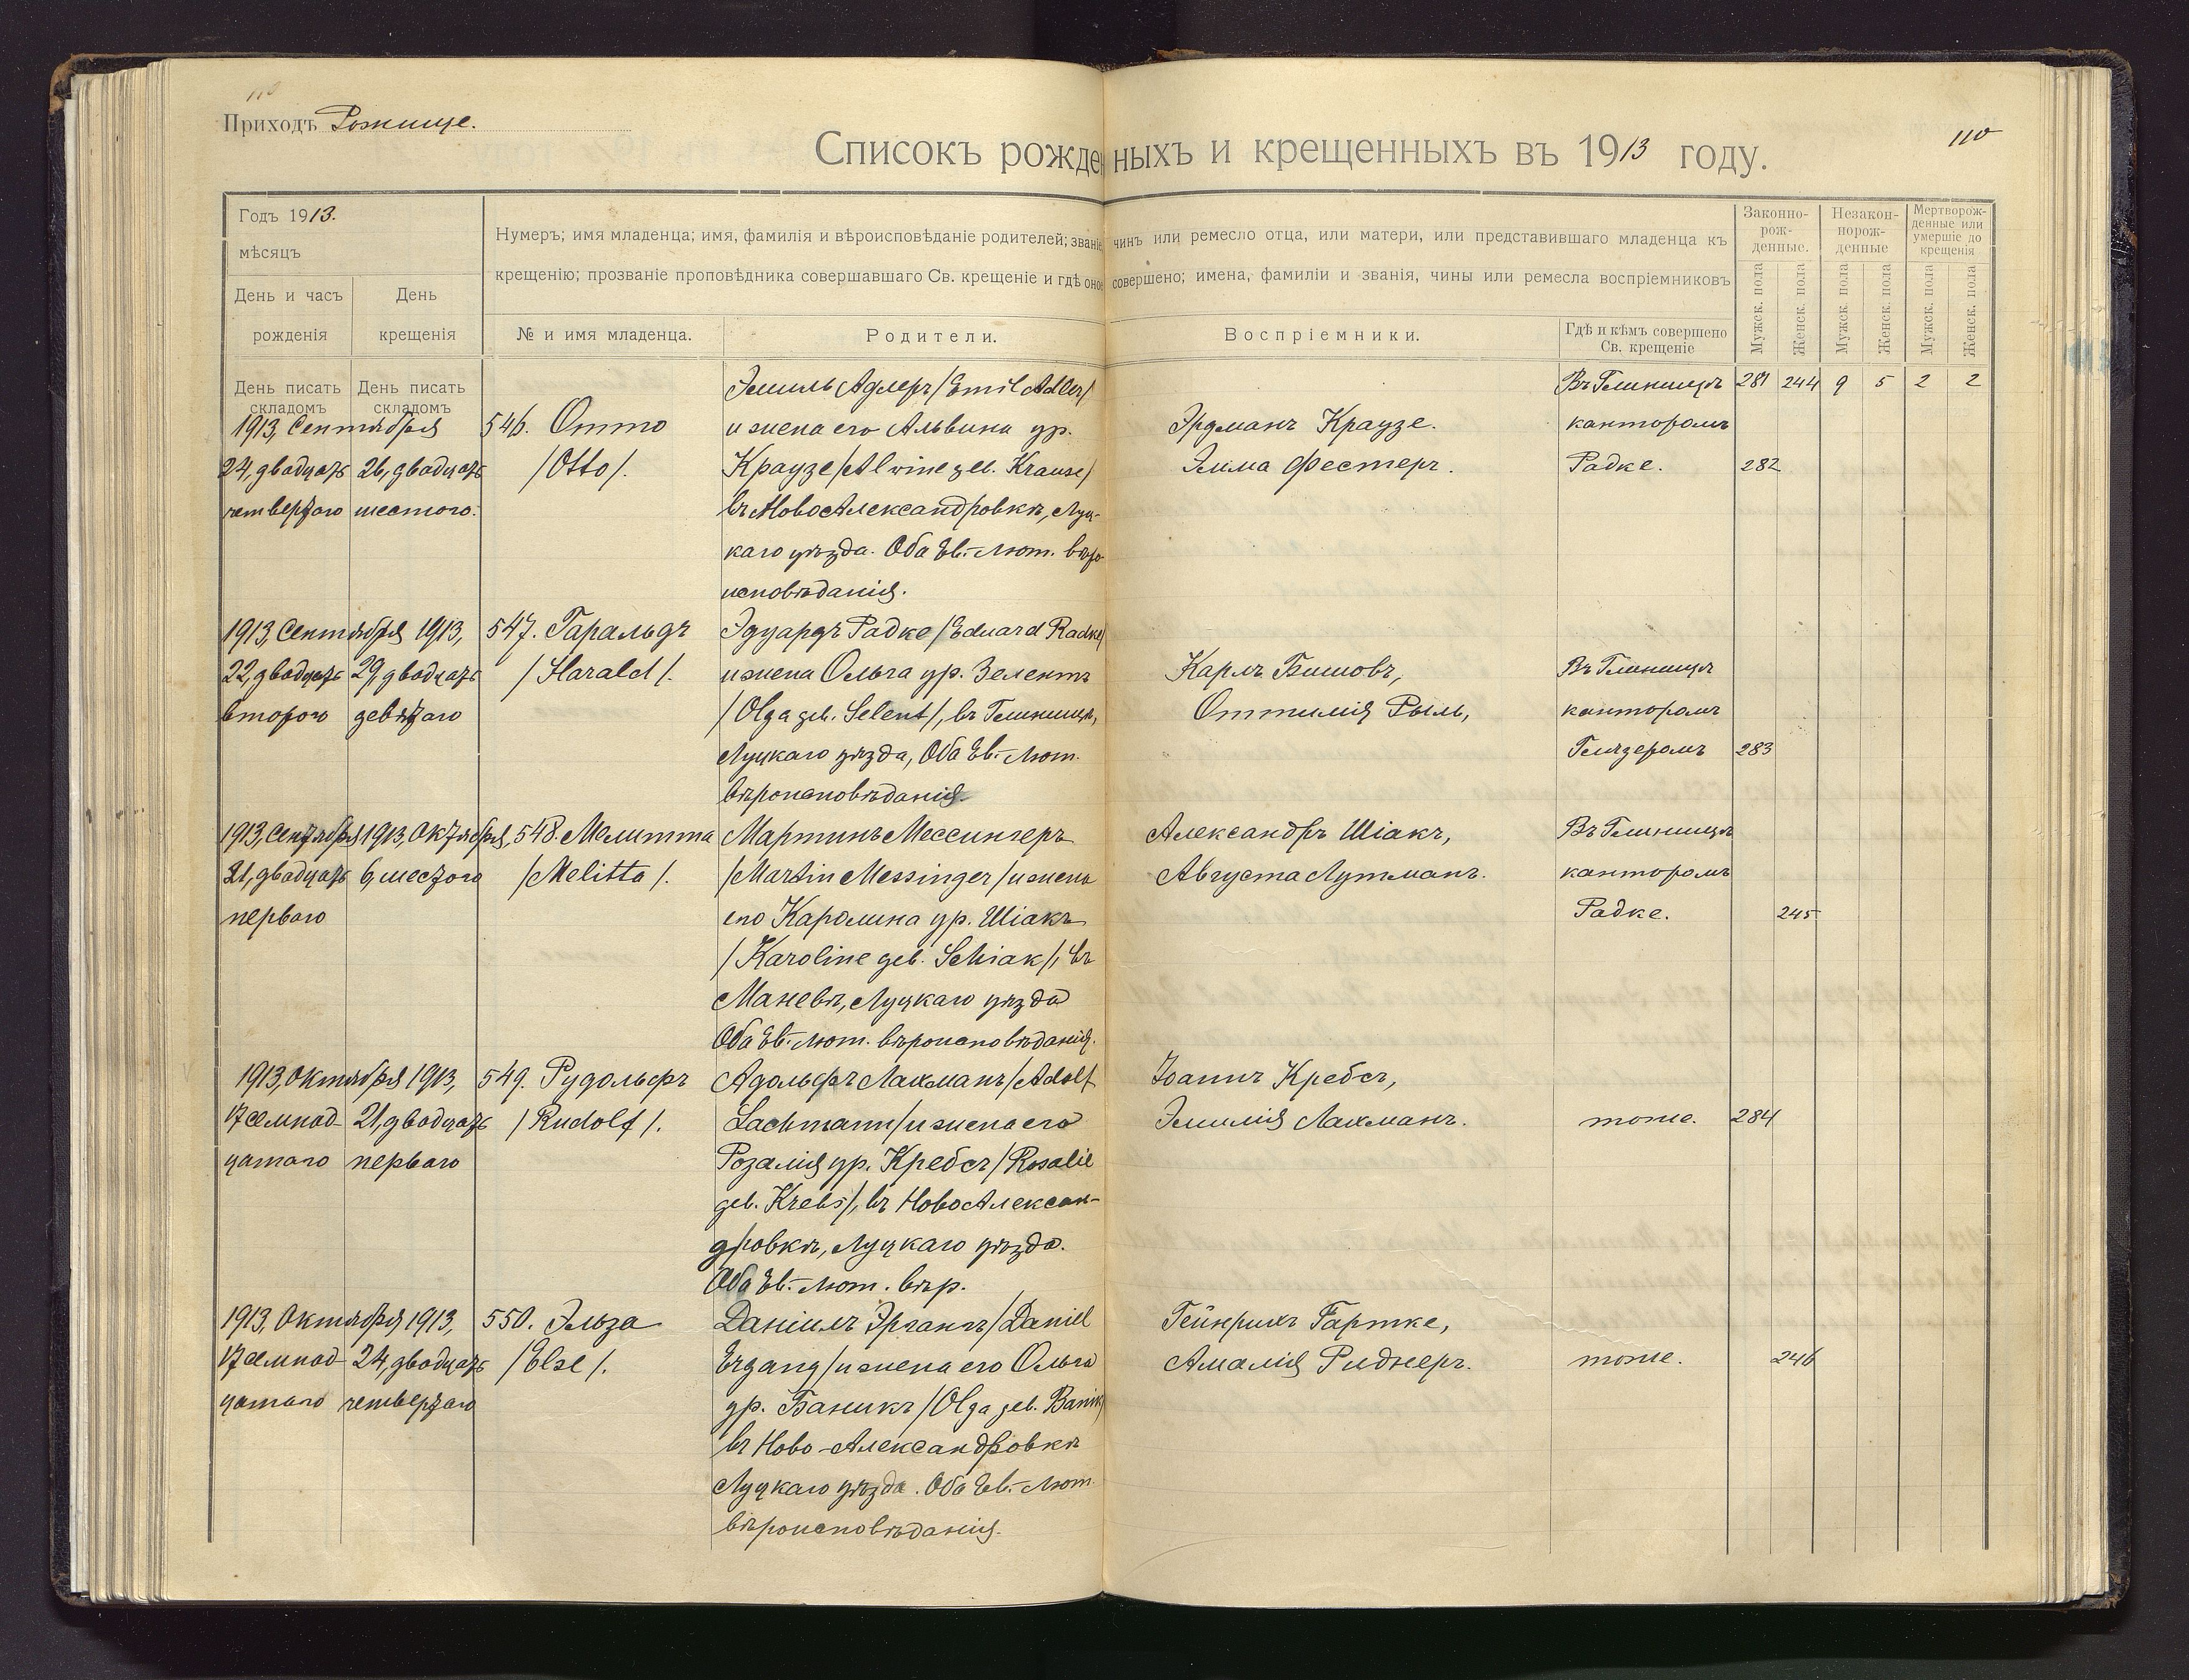 110
Приходъ Рожище.
Списокъ рожденныхъ и крещенныхъ въ 1913 году.
110
Годъ 1913.
мѣсяцъ
День и часъ рожденія
День крещенія
Нумеръ; имя младенца; имя, фамилія и вѣроисповѣданіе родителей; званіе, чинъ или ремесло отца, или матери, или представившаго младенца къ
крещенію; прозваніе проповѣдника совершавшаго Св. крещеніе и гдѣ оное совершено; имена, фамиліи и званія, чины или ремесла воспріемниковъ
№ и имя младенца.
Родители.
Воспріемники.
Гдѣ и кѣмъ совершено
Св. крещеніе
Законно-
рож-
денные.
Незакон-
норож-
денные
Мертворож-
денные или
умершіе до
крещенія
Мужск. пола
Женск. пола
Мужск. пола
Женск. пола
Мужск. пола
Женск. пола
День писать
складомъ
День писать
складомъ
281 244 9 5 2 2
1913, Сентября
24, двадцать
четвертаго
26, двадцать
шестого.
546. Отто
/Otto/.
Эмиль Адлеръ /Emil Adler/
и жена его Альвина ур.
Краузе /Alwine geb. Krause/
въ НовоАлександровкѣ, Луц-
каго уѣзда. Оба Ев.-Лют. вѣро
исповѣданія.
Эрдманъ Краузе.
Эмма Фестеръ.
Въ Глинищѣ
канторомъ
Радке.
282
1913, Сентября 1913,
22, двадцать
второго
29, двадцать
девятаго
547. Гаральдъ
/Harald/.
Эдуардъ Радке /Eduard Radke/
и жена Ольга ур. Зелентъ
/Olga geb. Selent/, въ Глинищѣ,
Луцкаго уѣзда, Оба Ев.-Лют.
вѣроисповѣданія.
Карлъ Бишовъ,
Оттилія Рыль,
Въ Глинищѣ
канторомъ
283
1913, Сентября 1913, Октября,
21, двадцать
перваго
6, шестого
548. Мелитта
/Melitta/.
Мартинъ Мессингеръ
/Martin Messinger/ и жена
его Каролина ур. Шіакъ
/Karoline geb. Schiak/, въ
Маневѣ, Луцкаго уѣзда
Оба Ев.-Лют. вѣроисповѣданія.
Александръ Шіакъ,
Августа Лутманъ.
Въ Глинищѣ
канторомъ
Радке.
245
1913, Октября 1913,
17 семнад-
цатаго
21, двадцать
перваго
549. Рудольфъ
/Rudolf/.
Адольфъ Лахманъ /Adolf
Lachmann/ и жена его
Розалія ур. Кребсъ /Rosalie
geb. Krebs/, въ НовоАлексан-
дровкѣ, Луцкаго уѣзда.
Оба Ев.-Лют. вѣр.
Іоаннъ Кребсъ,
Эмилія Лахманъ.
тоже.
284
1913, Октября 1913,
17 семнад-
цатаго
24, двадцать
четвертаго
550. Эльза
/Else/.
Даніилъ Эргангъ /Daniel
Ergang/ и жена его Ольга
ур. Баникъ /Olga geb. Banik/
въ Ново-Александровкѣ
Луцкаго уѣзда. Оба Ев.-Лют.
вѣроисповѣданія.
Гейнрихъ Гартке,
Амалія Риднеръ.
тоже.
246